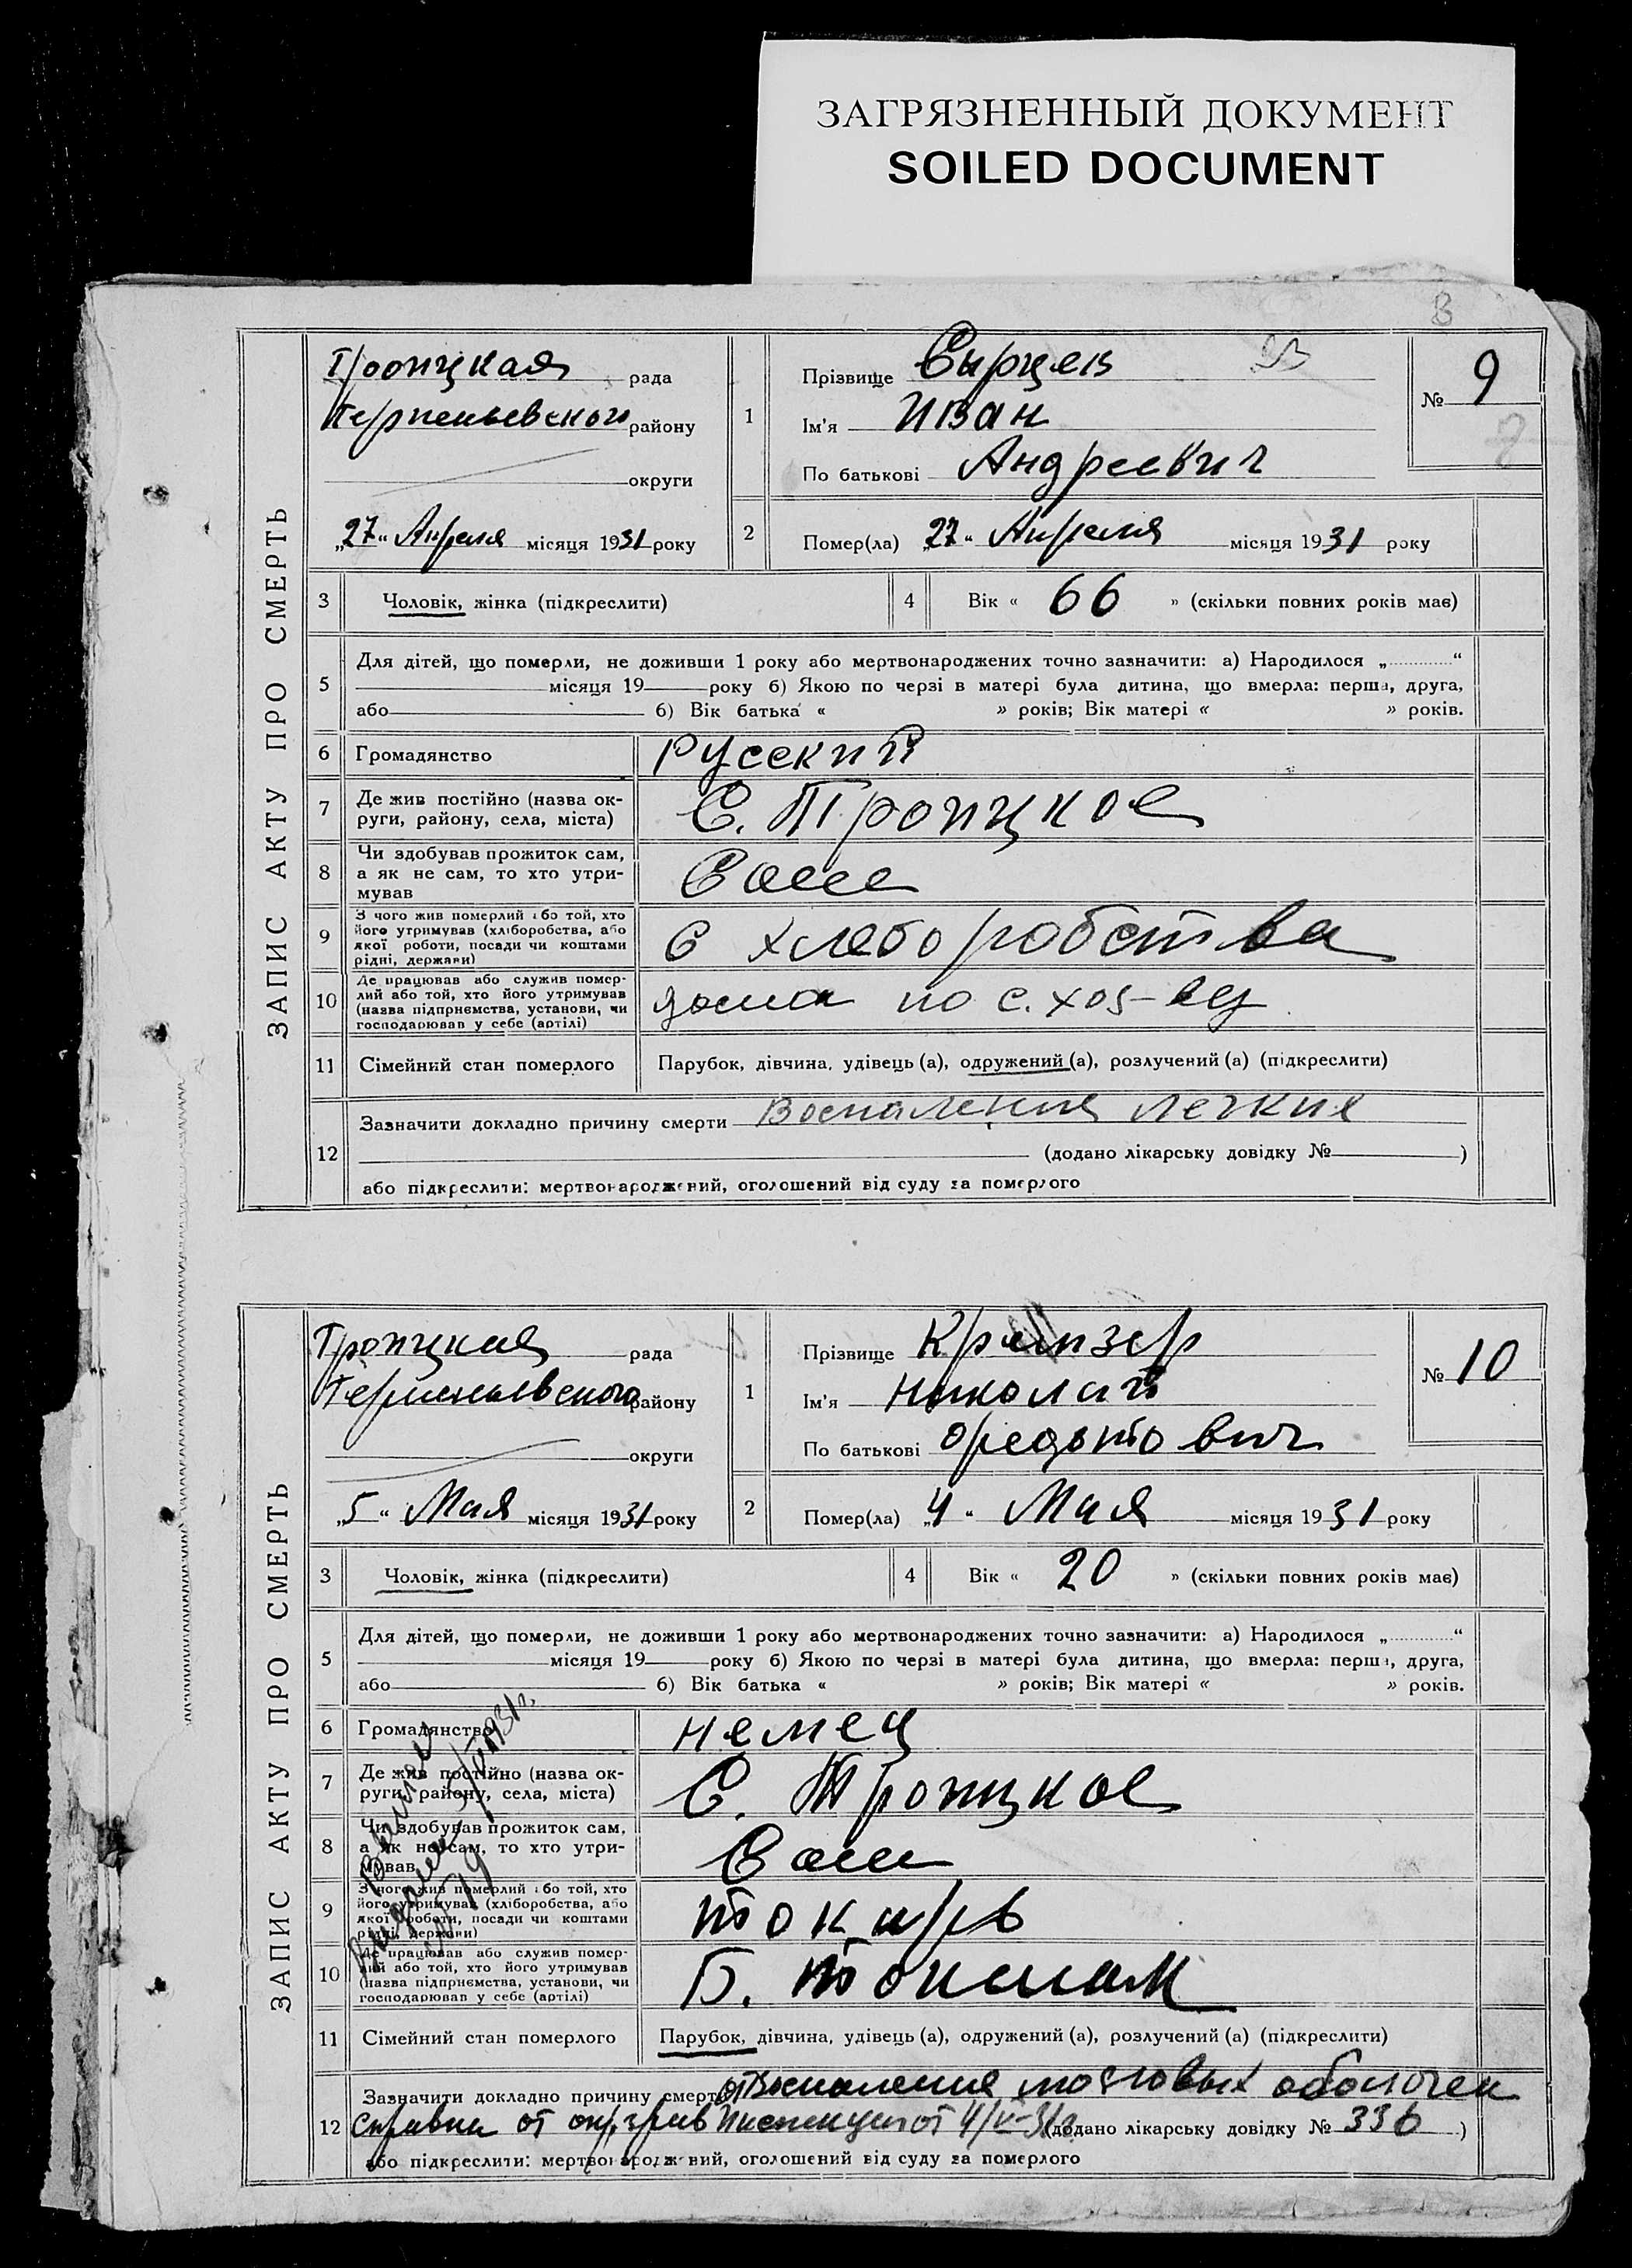 ЗАГРЯЗНЕННЫЙ ДОКУМЕНТ
SOILED DOCUMENT
8
ЗАПИС АКТУ ПРО СМЕРТЬ
Троицкая рада
Терпеньевского району
округи
„27“ Апреля місяця 1931 року
1
Прізвище Сырцев
Ім’я Иван
По батькові Андреевич
№ 9
2
Помер(ла) „27“ Апреля місяця 1931 року
3 Чоловік, жінка (підкреслити)
4 Вік « 66 » (скільки повних років має)
5
Для дітей, що померли, не доживши 1 року або мертвонароджених точно зазначити: а) Народилося „ “
місяця 19 року б) Якою по черзі в матері була дитина, що вмерла: перша, друга,
або б) Вік батька « » років; Вік матері « » років.
6 Громадянство русский
7 Де жив постійно (назва ок-
руги, району, села, міста)
С. Троицкое
8 Чи здобував прожиток сам,
а як не сам, то хто утри-
мував
Сам
9 З чого жив померлий або той, хто
його утримував (хліборобства, або
якої роботи, посади чи коштами
рідні, держави)
С хлеборобства
10 Де працював або служив помер-
лий або той, хто його утримував
(назва підприємства, установи, чи
господарював у себе (артілі)
дома по с. хоз-ву
11 Сімейний стан померлого Парубок, дівчина, удівець (а), одружений (а), розлучений (а) (підкреслити)
12
Зазначити докладно причину смерти Воспаления легкия
(додано лікарську довідку № )
або підкреслити: мертвонароджений, оголошений від суду за померлого
ЗАПИС АКТУ ПРО СМЕРТЬ
Троицкая рада
Терпеньевского району
округи
„5“ Мая місяця 1931 року
1
Прізвище
Ім’я Николай
По батькові
№ 10
2
Помер(ла) „4“ Мая місяця 1931 року
3 Чоловік, жінка (підкреслити)
4 Вік « 20 » (скільки повних років має)
5
Для дітей, що померли, не доживши 1 року або мертвонароджених точно зазначити: а) Народилося „ “
місяця 19 року б) Якою по черзі в матері була дитина, що вмерла: перша, друга,
або б) Вік батька « » років; Вік матері « » років.
6 Громадянство немец
7 Де жив постійно (назва ок-
руги, району, села, міста)
С. Троицкое
8 Чи здобував прожиток сам,
а як не сам, то хто утри-
мував
Сам
9 З чого жив померлий або той, хто
його утримував (хліборобства, або
якої роботи, посади чи коштами
рідні, держави)
токарь
10 Де працював або служив помер-
лий або той, хто його утримував
(назва підприємства, установи, чи
господарював у себе (артілі)
Б. Токмак
11 Сімейний стан померлого Парубок, дівчина, удівець (а), одружений (а), розлучений (а) (підкреслити)
12
Зазначити докладно причину смерти от Воспаления мозговых оболочек
справка от инспекции от 4/V-31г (додано лікарську довідку № 336 )
або підкреслити: мертвонароджений, оголошений від суду за померлого